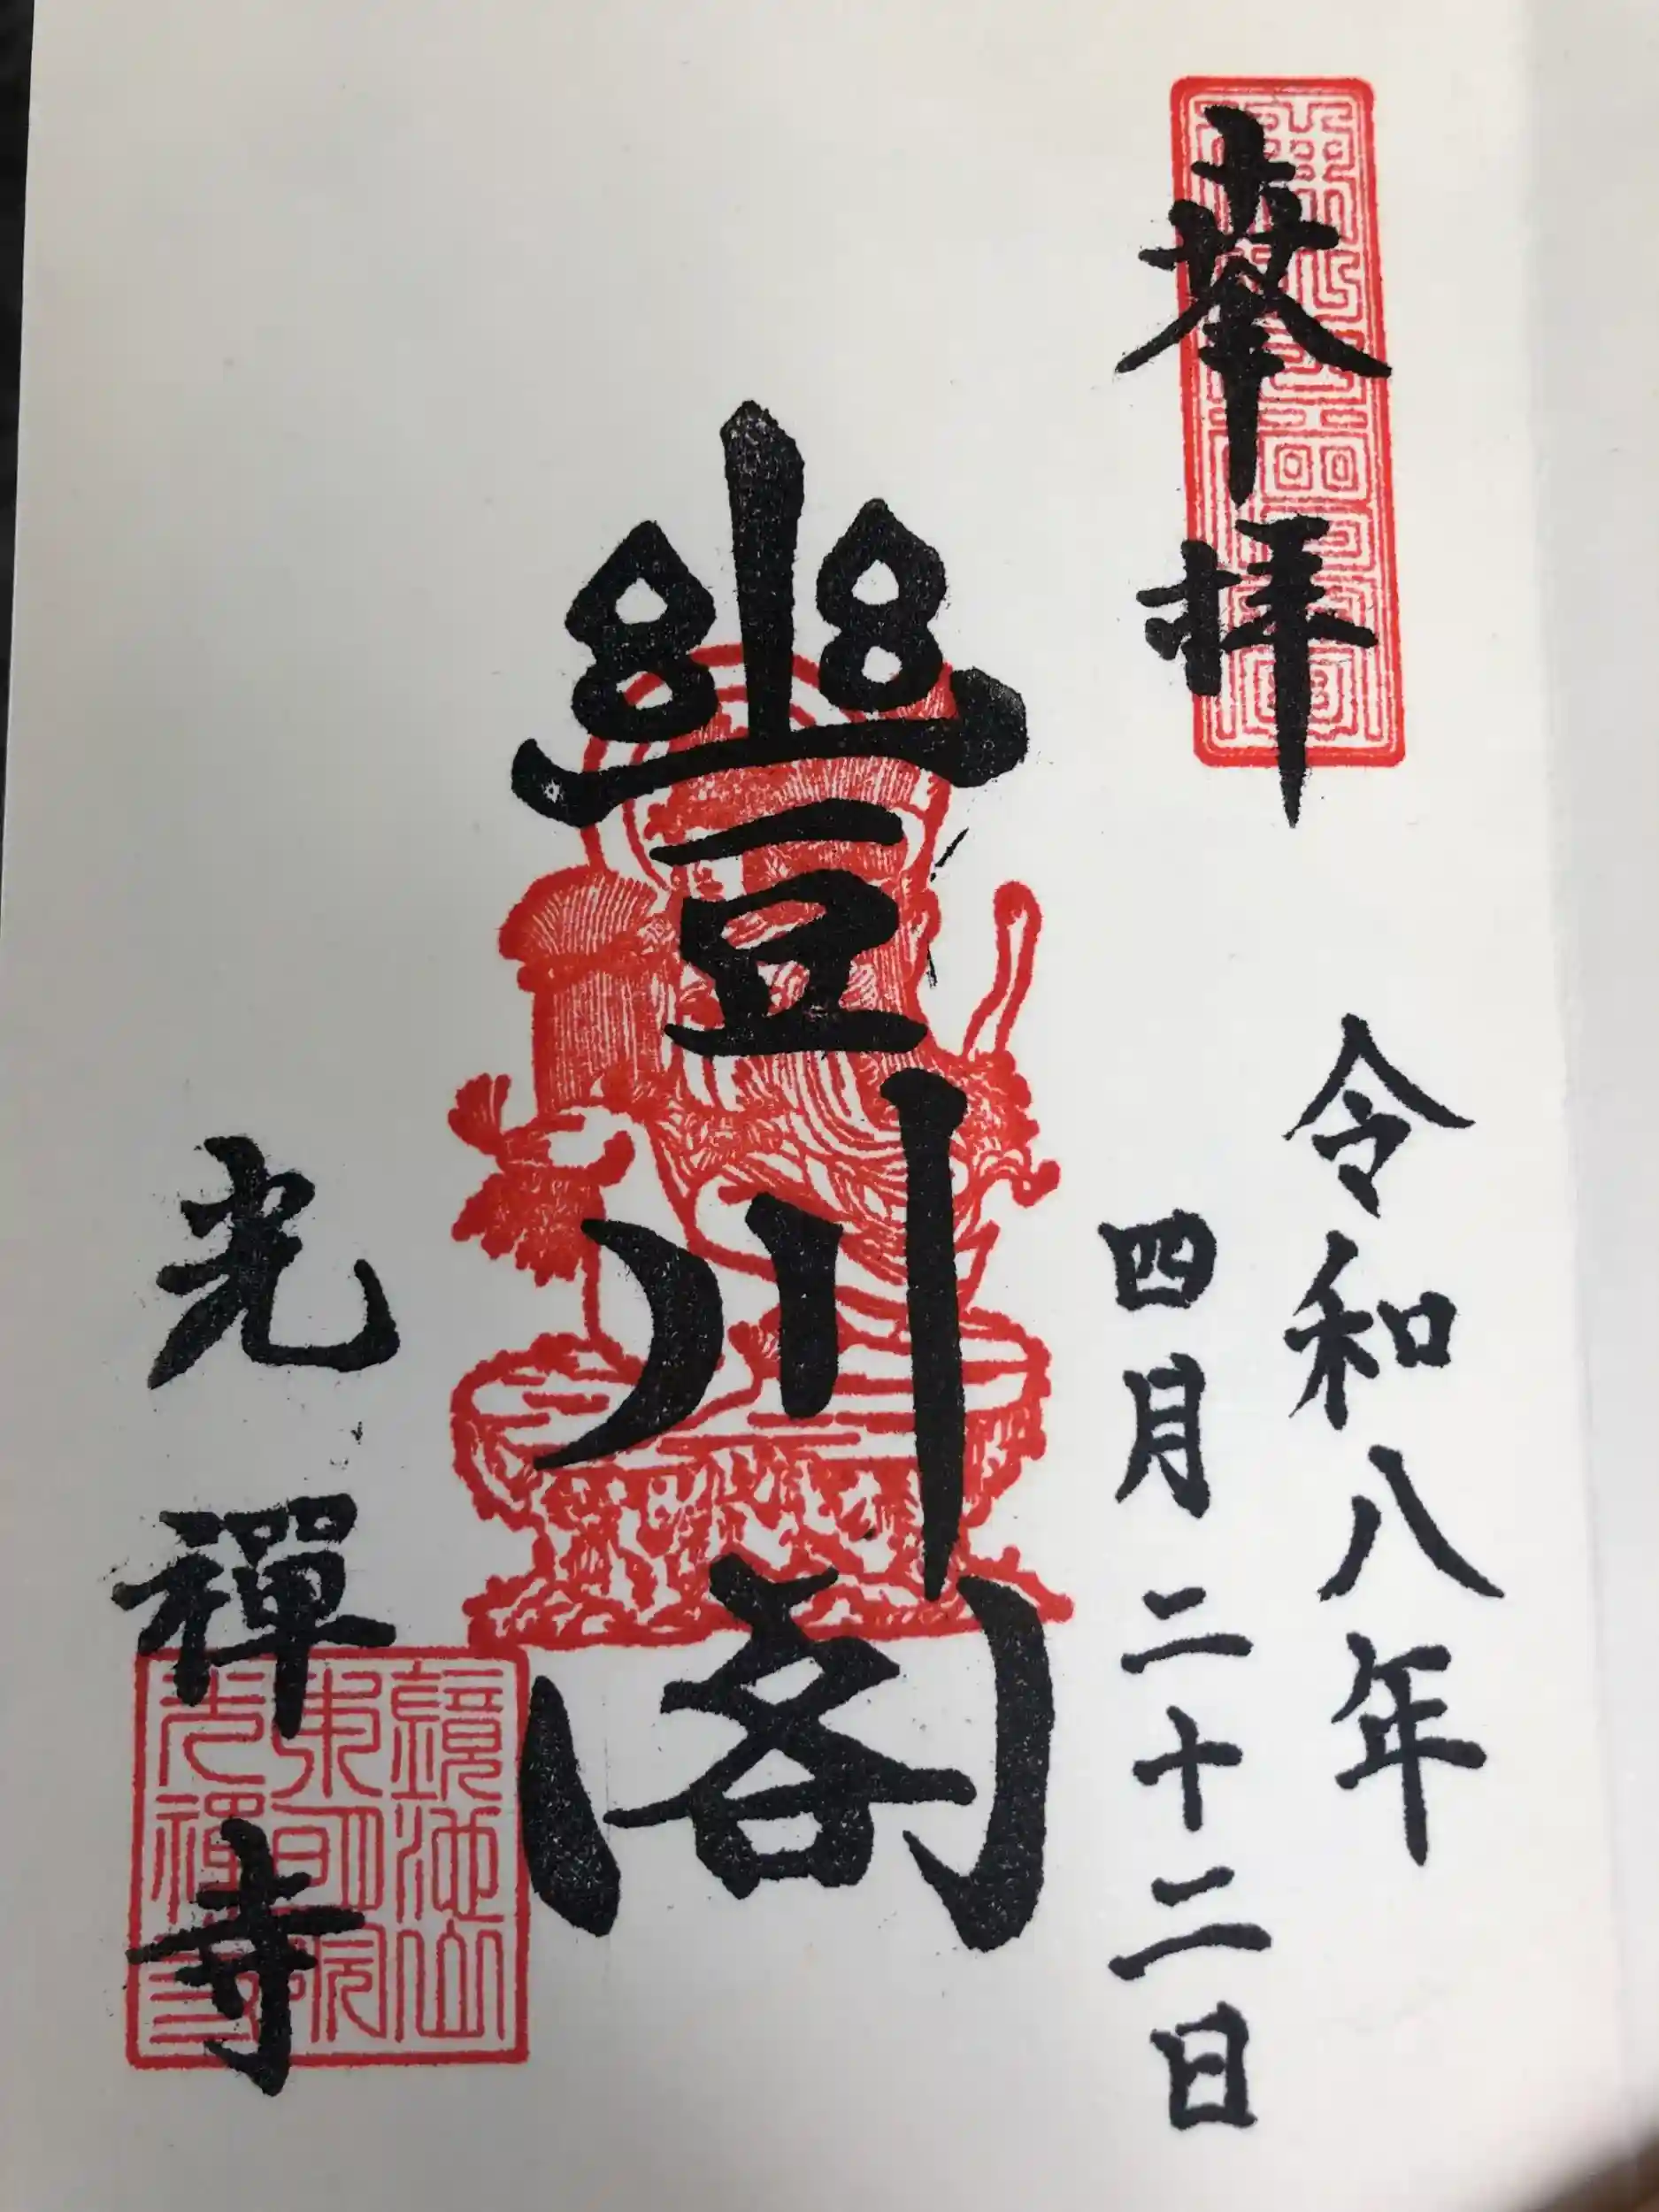 奉拝
令和八年
四月二十二日
豊川閣
光禪寺
鏡池山
東明院
光禪寺